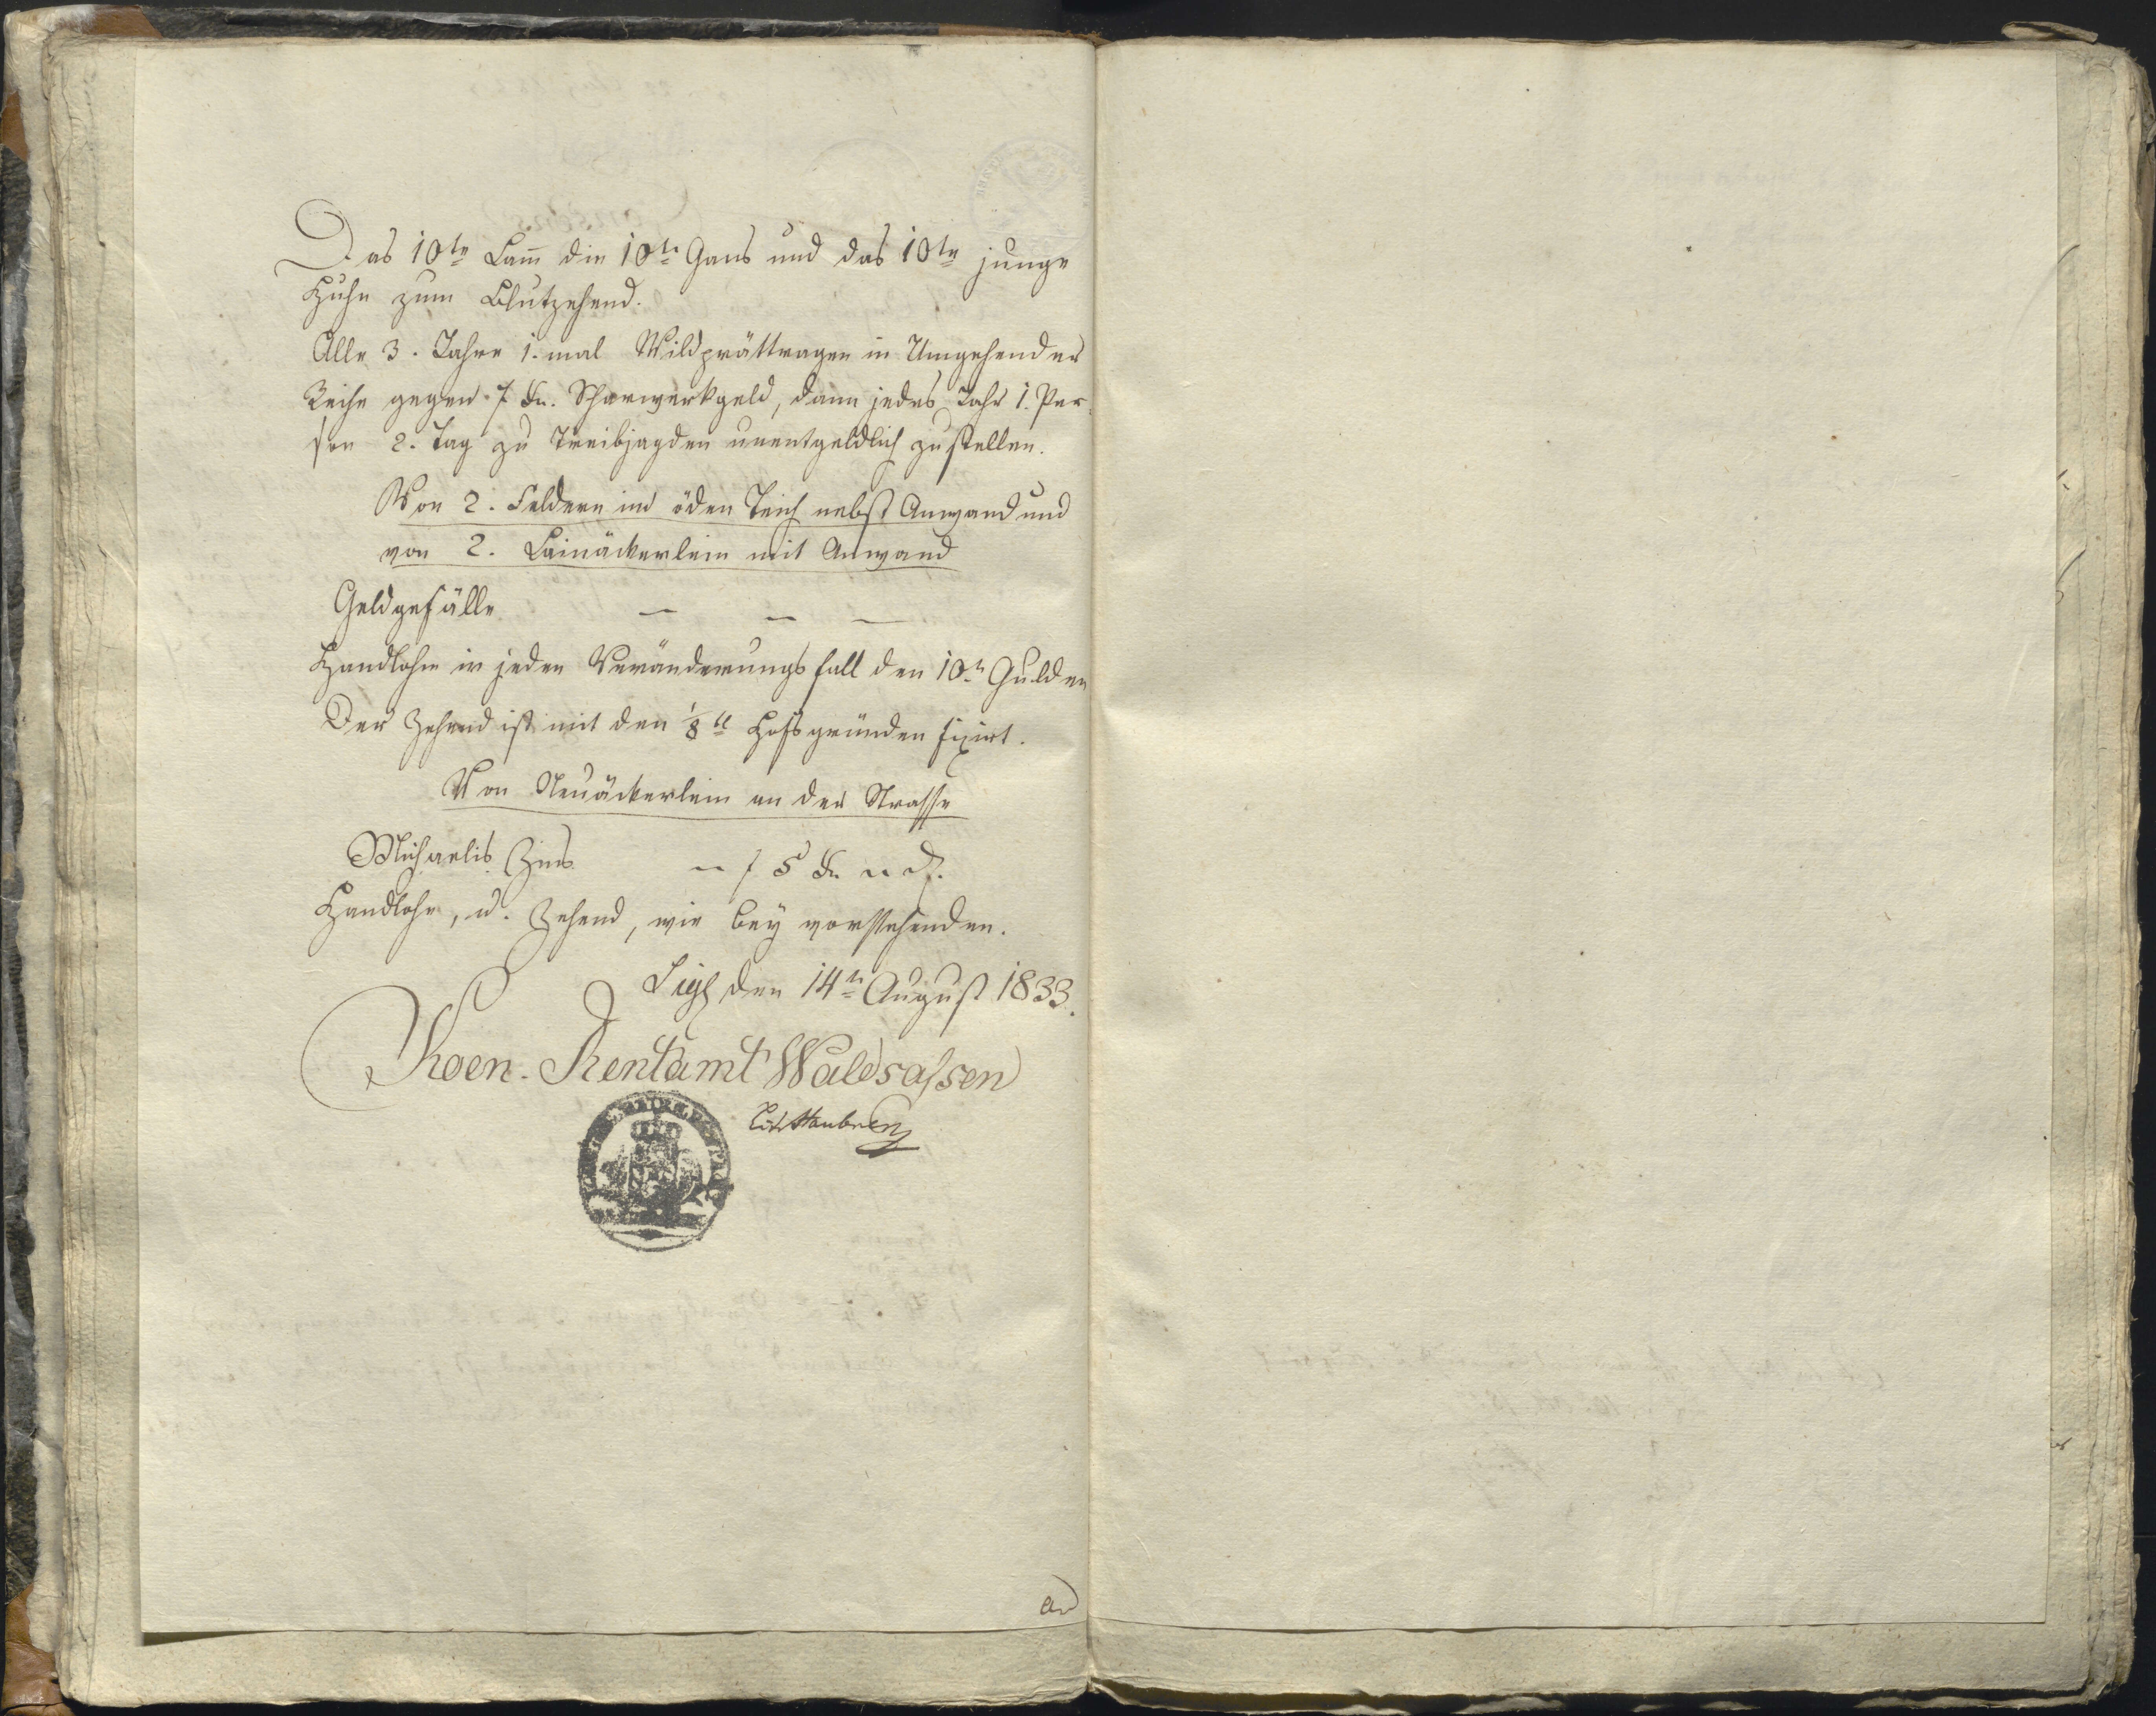 Das 10te Lam̄ die 10te Gans und das 10te junge
Huhn zum Blutzehend.
Alle 3. Jahre 1. mal Wildprättragen in Umgehender
Reihe gegen 7 Kr. Scharwerkgeld, dann jedes Jahr 1. Per
son 2. Tag zu Treibjagden unentgeldlich zustellen.
Von 2. Feldern im öden Teich nebst Anwand und
von 2. Lainäckerlein mit Anwand
Geldgefälle — — —
Handlohn in jeden Veränderungsfall den 10n Gulden
Der Zehend ist mit den 1/8tl Hofsgründen fixirt.
Von Neuäckerlein an der Strasse
Michaelis Zins — f 5 Kr.
Handlohn, u. Zehend, wie bey vorstehenden.
den 14n August 1833.
Koen. Rentamt Waldsassen